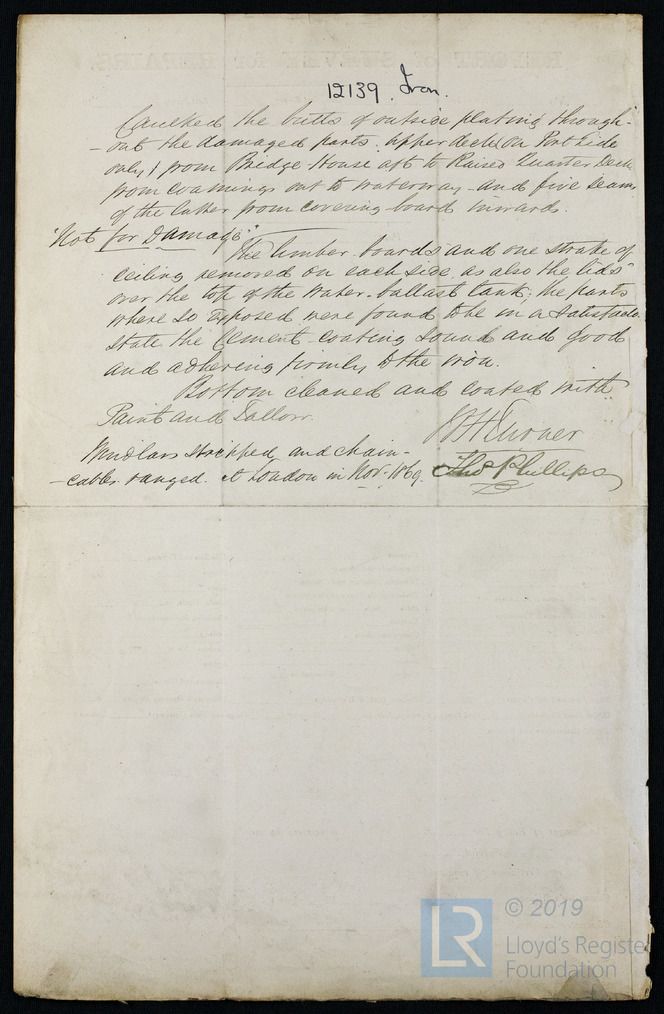 12139 Iron.
Caulked the butts of outside plating through-
-out the damaged parts. Upper deck (on Port Side
only) from Bridge House aft to Raised Quarter Deck
from coamings out to waterway - and five seams
of the latter from covering board inwards.
"Not for Damage"
The limber boards and one strake of
ceiling removed on each side, as also the lids
over the top of the water-ballast tank; the parts
where so exposed were found to be in a
state the Cement-coating sound and good
and adhering firmly to the iron.
Bottom cleaned and coated with
Paint and Tallow.
Windlass stripped and chain-
-cables ranged at London in Nov. 1869.
Turner
Thos Phillips
LR © 2019
Lloyd's Register
Foundation